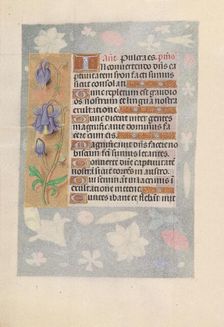 In convertendo dñs ca
ptivitatem syon facti sumus
sicut consolati
Tunc repletum est gaudio
os nostrum et lingua nostra
exultatione
Tunc dicent inter gentes
magnificavit dominus
facere cum eis
Magnificavit dñs facere
nobiscum facti sumus letantes
Converte domine captivitatem
nostram sicut torrens in austro
Qui seminant in lacrimis in
exultatione metent
Euntes ibant et flebant mit